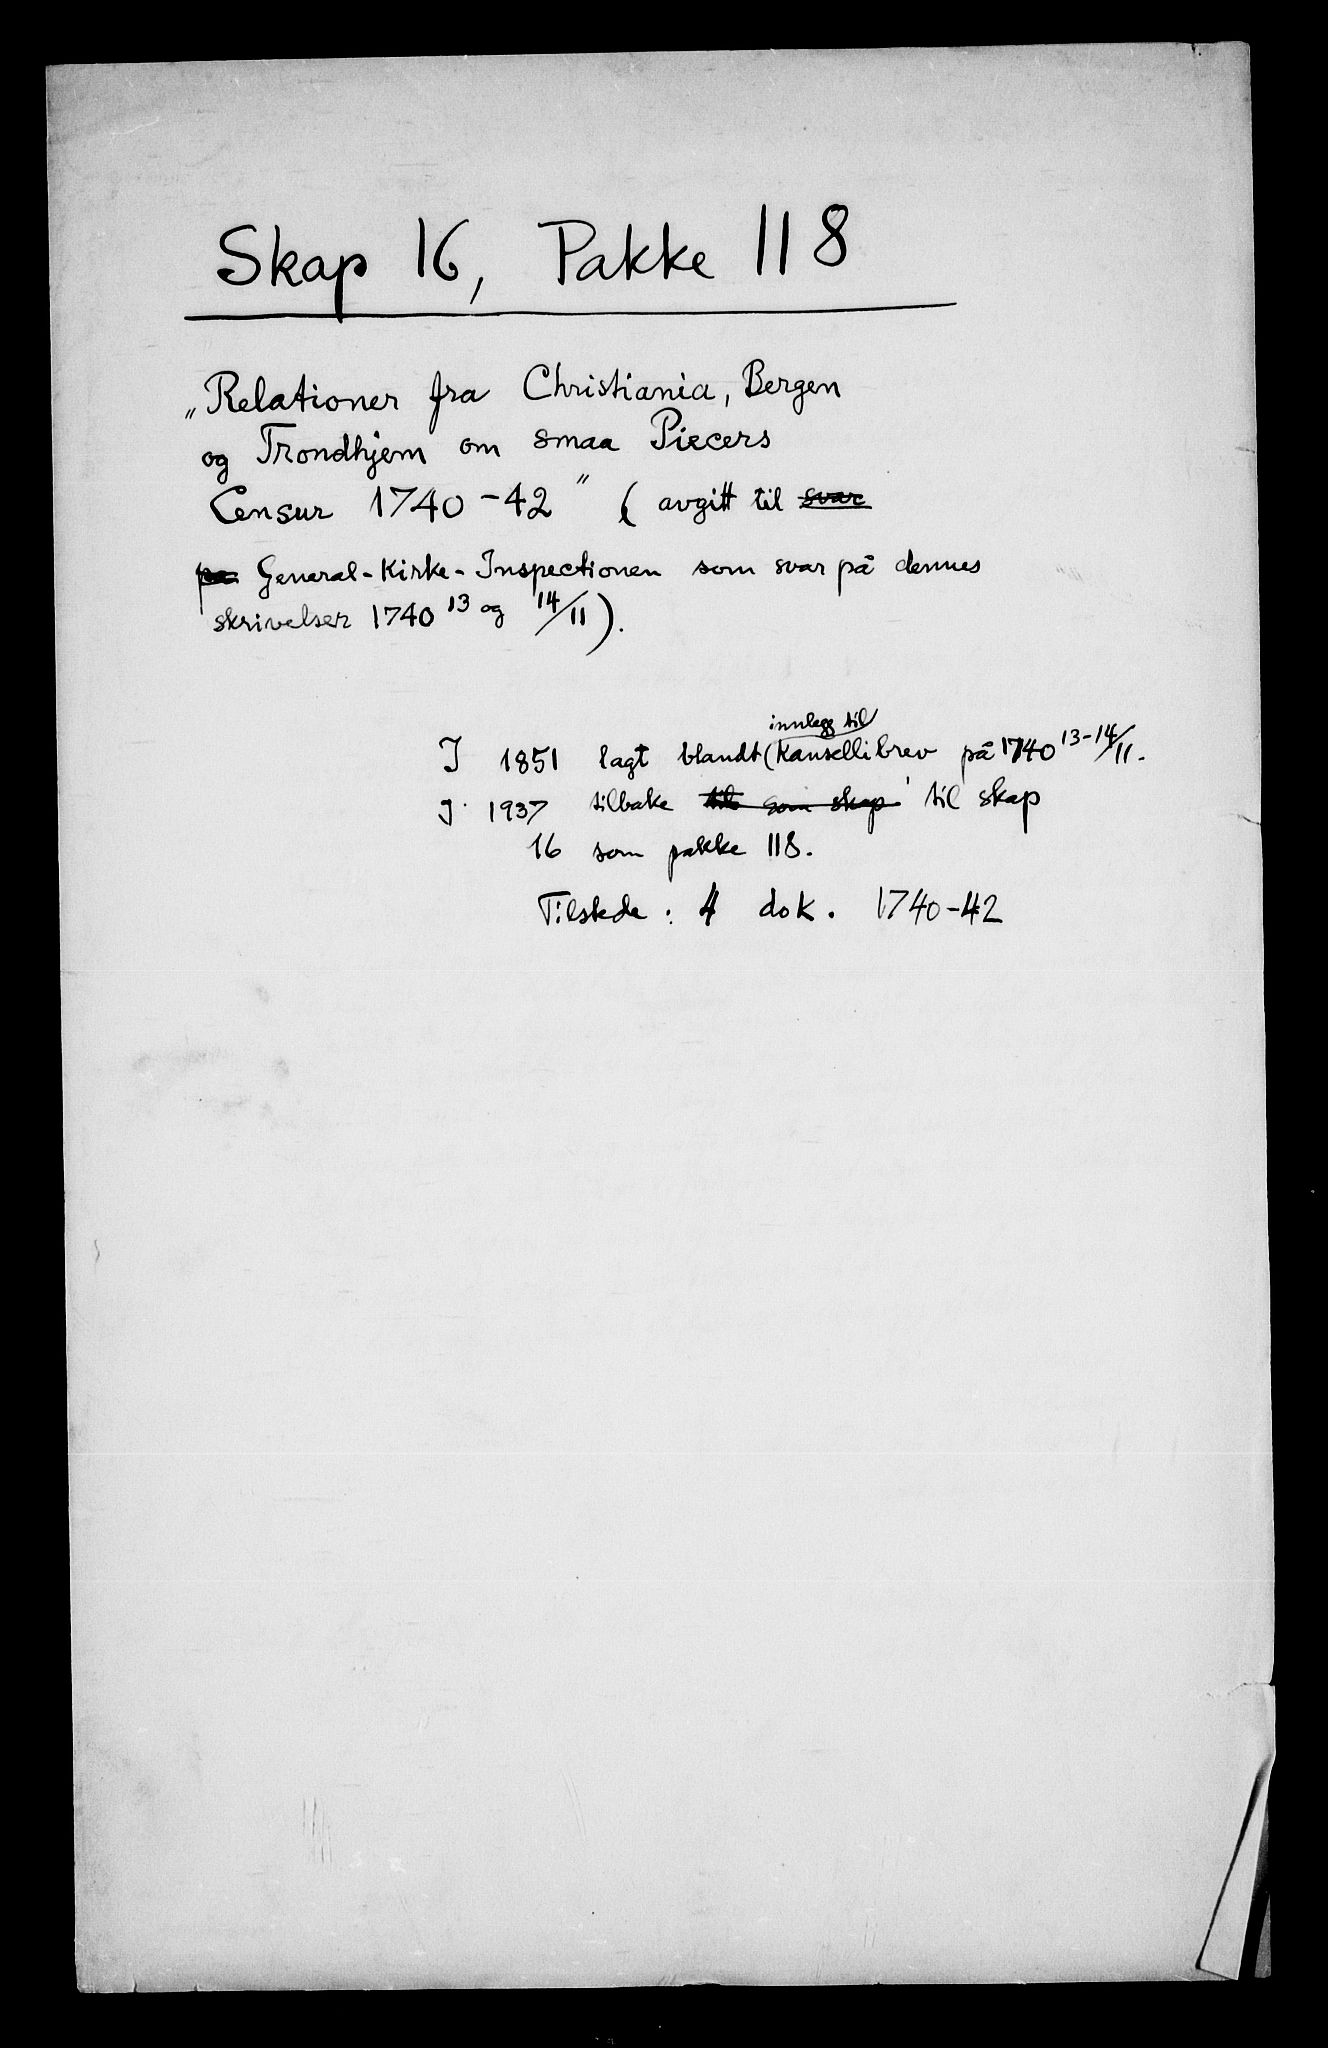 Skap 16, Pakke 118
„Relationer fra Christiania, Bergen
og Trondhjem om smaa Piecers
Censur 1740-42" (avgitt til svar
pa General-Kirke-Inspectionen som svar på dennes
skrivelser 1740 13 og 14/11).
innlegg til
I 1851 lagt blandt (Kansellibrev på 1740 13-14/11.
I 1937 tilbake til som skap til skap
16 som pakke 118.
Tilstede: 4 dok. 1740-42